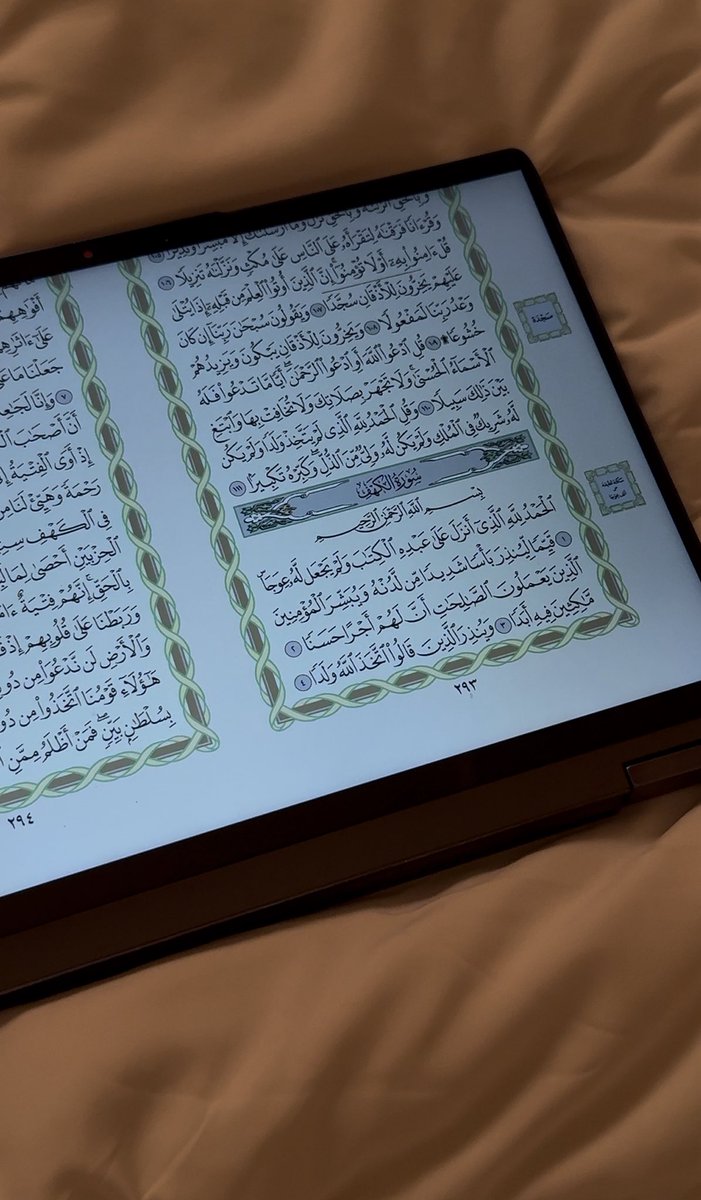 وَقُرْءَانًا فَرَقْنَٰهُ لِتَقْرَأَهُۥ عَلَى ٱلنَّاسِ عَلَىٰ مُكْثٍ وَنَزَّلْنَٰهُ تَنزِيلًا ١٠٦
قُلْ ءَامِنُوا۟ بِهِۦٓ أَوْ لَا تُؤْمِنُوٓا۟ إِنَّ ٱلَّذِينَ أُوتُوا۟ ٱلْعِلْمَ مِن قَبْلِهِۦٓ إِذَا يُتْلَىٰ
عَلَيْهِمْ يَخِرُّونَ لِلْأَذْقَانِ سُجَّدًا ١٠٧ وَيَقُولُونَ سُبْحَٰنَ رَبِّنَآ إِن كَانَ
وَعْدُ رَبِّنَا لَمَفْعُولًا ١٠٨ وَيَخِرُّونَ لِلْأَذْقَانِ يَبْكُونَ وَيَزِيدُهُمْ
خُشُوعًا ۩ ١٠٩ قُلِ ٱدْعُوا۟ ٱللَّهَ أَوِ ٱدْعُوا۟ ٱلرَّحْمَٰنَ أَيًّا مَّا تَدْعُوا۟ فَلَهُ
ٱلْأَسْمَآءُ ٱلْحُسْنَىٰ وَلَا تَجْهَرْ بِصَلَاتِكَ وَلَا تُخَافِتْ بِهَا وَٱبْتَغِ
بَيْنَ ذَٰلِكَ سَبِيلًا ١١٠ وَقُلِ ٱلْحَمْدُ لِلَّهِ ٱلَّذِى لَمْ يَتَّخِذْ وَلَدًا وَلَمْ يَكُن
لَّهُۥ شَرِيكٌ فِى ٱلْمُلْكِ وَلَمْ يَكُن لَّهُۥ وَلِىٌّ مِّنَ ٱلذُّلِّ وَكَبِّرْهُ تَكْبِيرًۢا ١١١
سُورَةُ الكَهْفِ
بِسْمِ ٱللَّهِ ٱلرَّحْمَٰنِ ٱلرَّحِيمِ
ٱلْحَمْدُ لِلَّهِ ٱلَّذِىٓ أَنزَلَ عَلَىٰ عَبْدِهِ ٱلْكِتَٰبَ وَلَمْ يَجْعَل لَّهُۥ عِوَجَاۜ
١ قَيِّمًا لِّيُنذِرَ بَأْسًا شَدِيدًا مِّن لَّدُنْهُ وَيُبَشِّرَ ٱلْمُؤْمِنِينَ
ٱلَّذِينَ يَعْمَلُونَ ٱلصَّٰلِحَٰتِ أَنَّ لَهُمْ أَجْرًا حَسَنًا ٢
مَّٰكِثِينَ فِيهِ أَبَدًا ٣ وَيُنذِرَ ٱلَّذِينَ قَالُوا۟ ٱتَّخَذَ ٱللَّهُ وَلَدًا ٤
٢٩٣
سَجْدَة
عَلَىٰٓ ءَاثَٰرِهِمْ
جَعَلْنَا مَا عَلَى
٧ وَإِنَّا لَجَٰعِلُونَ
أَنَّ أَصْحَٰبَ
إِذْ أَوَى ٱلْفِتْيَةُ إِلَى
رَحْمَةً وَهَيِّئْ لَنَا مِنْ
فِى ٱلْكَهْفِ سِنِينَ
ٱلْحِزْبَيْنِ أَحْصَىٰ لِمَا
بِٱلْحَقِّ إِنَّهُمْ فِتْيَةٌ
وَرَبَطْنَا عَلَىٰ قُلُوبِهِمْ إِذْ
وَٱلْأَرْضِ لَن نَّدْعُوَا۟ مِن دُونِهِۦٓ
هَٰٓؤُلَآءِ قَوْمُنَا ٱتَّخَذُوا۟ مِن دُونِهِۦٓ
بِسُلْطَٰنٍۭ بَيِّنٍ فَمَنْ أَظْلَمُ مِمَّنِ
٢٩٤